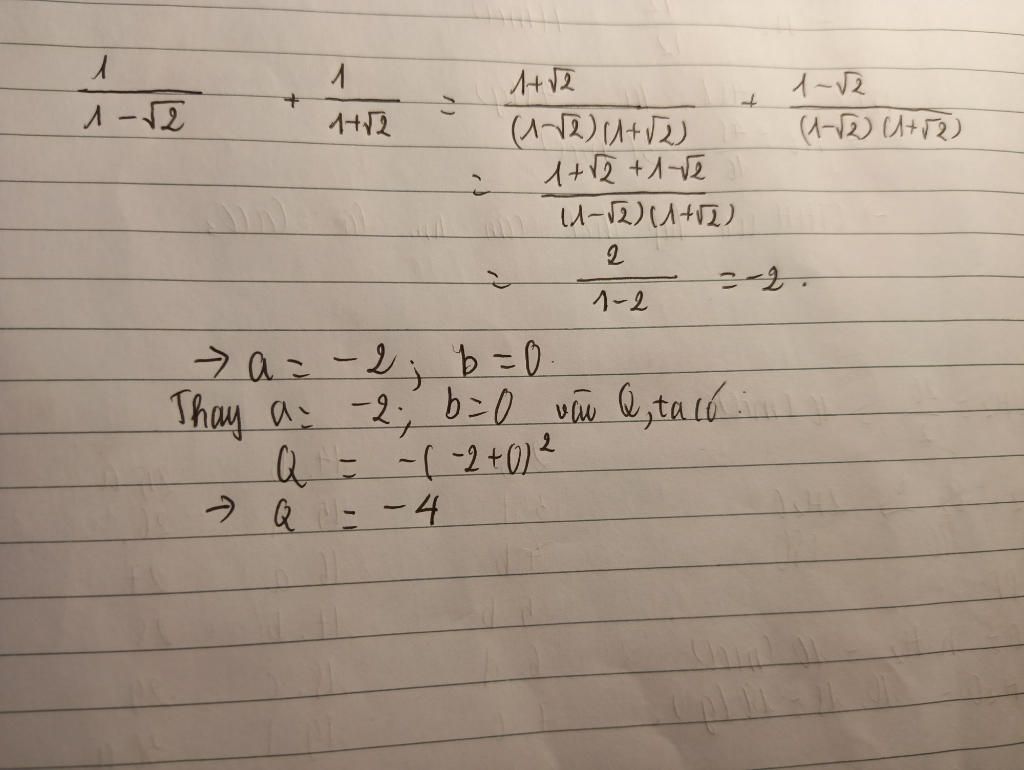 1/(1-√2) + 1/(1+√2) = (1+√2)/((1-√2)(1+√2)) + (1-√2)/((1-√2)(1+√2))
= (1+√2+1-√2)/((1-√2)(1+√2))
= 2/(1-2) = -2.
→ a = -2; b = 0.
Thay a = -2; b = 0 vào Q, ta có:
Q = -(-2+0)²
→ Q = -4